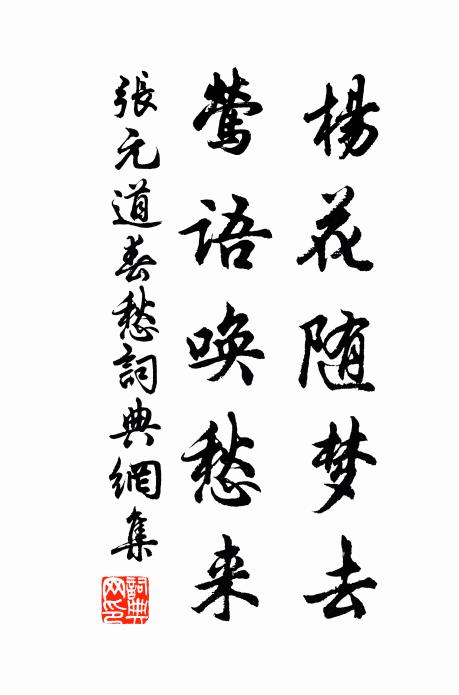 楊花随梦去
鶯語唤愁来
張元道春愁詞典網集
詞典网印